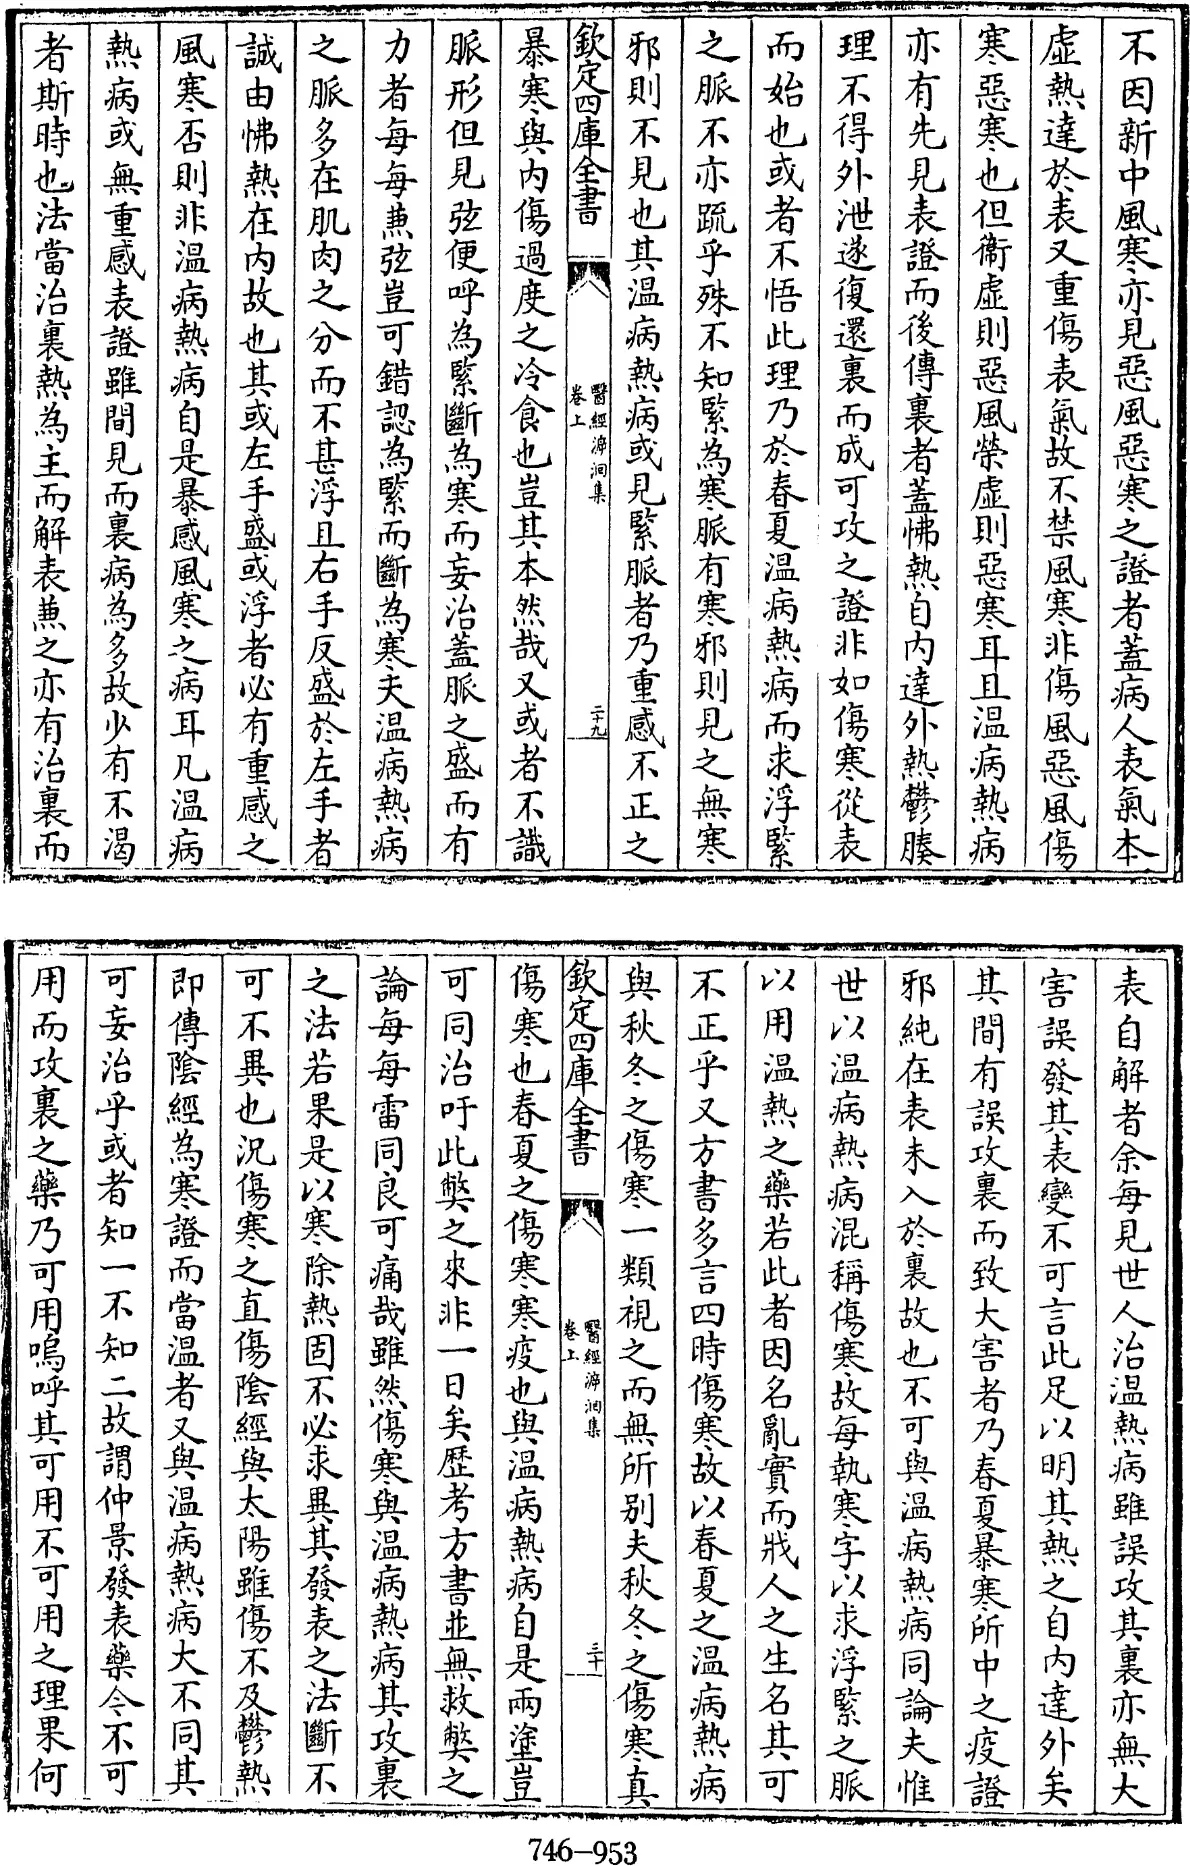 不因新中風寒亦見惡風惡寒之證者蓋病人表氣本
虛熱達於表又重傷表氣故不禁風寒非傷風惡風傷
寒惡寒也但衞虛則惡風榮虛則惡寒耳且温病熱病
亦有先見表證而後傳裏者蓋怫熱自内達外熱鬱腠
理不得外泄遂復還裏而成可攻之證非如傷寒從表
而始也或者不悟此理乃於春夏温病熱病而求浮緊
之脈不亦疏乎殊不知緊為寒脈有寒邪則見之無寒
邪則不見也其温病熱病或見緊脈者乃重感不正之
欽定四庫全書
醫經溯洄集
卷上
二十九
暴寒與内傷過度之冷食也豈其本然哉又或者不識
脈形但見弦便呼為緊斷為寒而妄治蓋脈之盛而有
力者每每兼弦豈可錯認為緊而斷為寒夫温病熱病
之脈多在肌肉之分而不甚浮且右手反盛於左手者
誠由怫熱在内故也其或左手盛或浮者必有重感之
風寒否則非温病熱病自是暴感風寒之病耳凡温病
熱病或無重感表證雖間見而裏病為多故少有不渴
者斯時也法當治裏熱為主而解表兼之亦有治裏而
表自解者余每見世人治温熱病雖誤攻其裏亦無大
害誤發其表變不可言此足以明其熱之自内達外矣
其間有誤攻裏而致大害者乃春夏暴寒所中之疫證
邪純在表未入於裏故也不可與温病熱病同論夫惟
世以温病熱病混稱傷寒故每執寒字以求浮緊之脈
以用温熱之藥若此者因名亂實而戕人之生名其可
不正乎又方書多言四時傷寒故以春夏之温病熱病
與秋冬之傷寒一類視之而無所别夫秋冬之傷寒真
欽定四庫全書
醫經溯洄集
卷上
三十
傷寒也春夏之傷寒寒疫也與温病熱病自是兩塗豈
可同治吁此弊之來非一日矣歷考方書並無救弊之
論每每雷同良可痛哉雖然傷寒與温病熱病其攻裏
之法若果是以寒除熱固不必求異其發表之法斷不
可不異也況傷寒之直傷陰經與太陽雖傷不及鬱熱
即傳陰經為寒證而當温者又與温病熱病大不同其
可妄治乎或者知一不知二故謂仲景發表藥今不可
用而攻裏之藥乃可用嗚呼其可用不可用之理果何
746-953